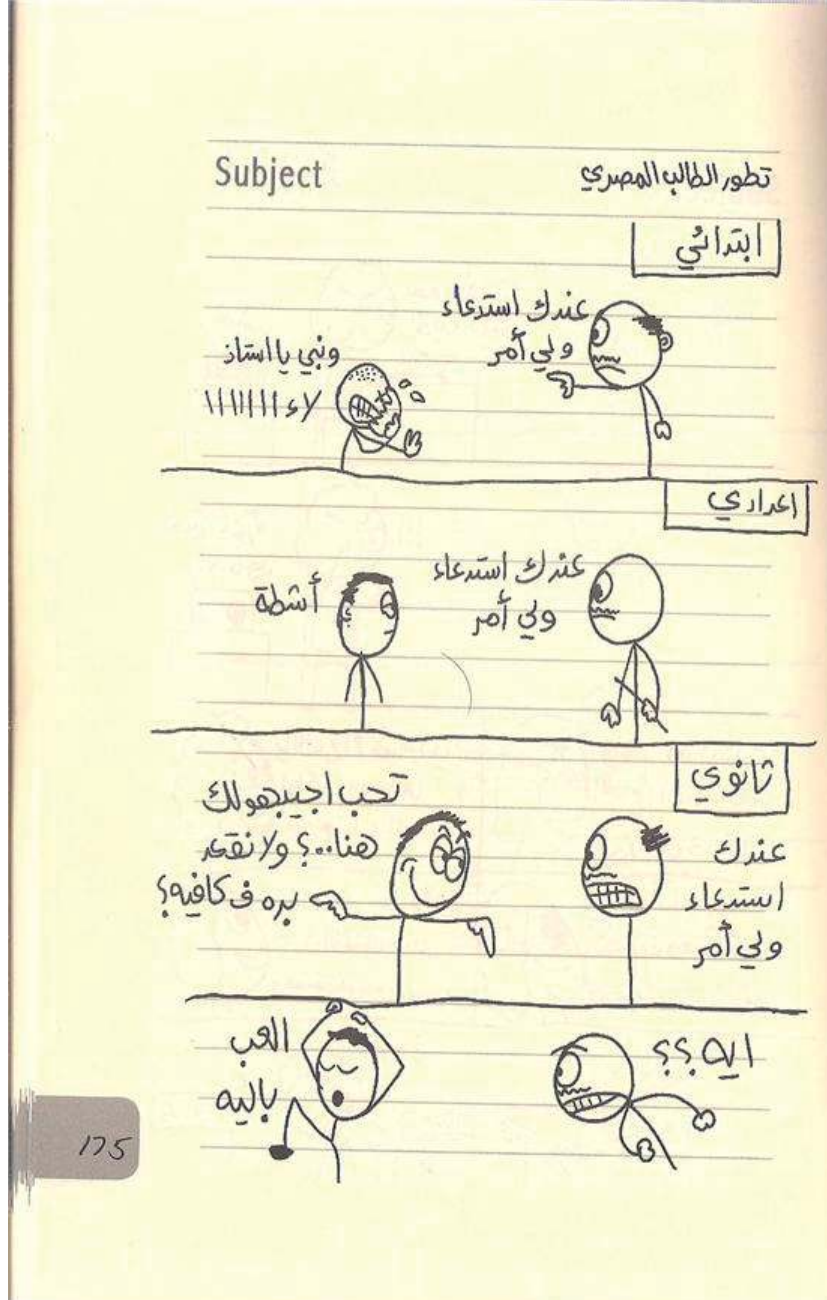 Subject
تطور الطالب المصري
ابتدائي
عندك استدعاء
ولي أمر
ونبي يا استاذ
لاء ااااااااا
اعدادي
عندك استدعاء
ولي أمر
أشطة
ثانوي
عندك
استدعاء
ولي أمر
تحب اجيبهولك
هنا..؟ ولا نقعد
بره ف كافيه؟
ايه؟؟
العب
باليه
175